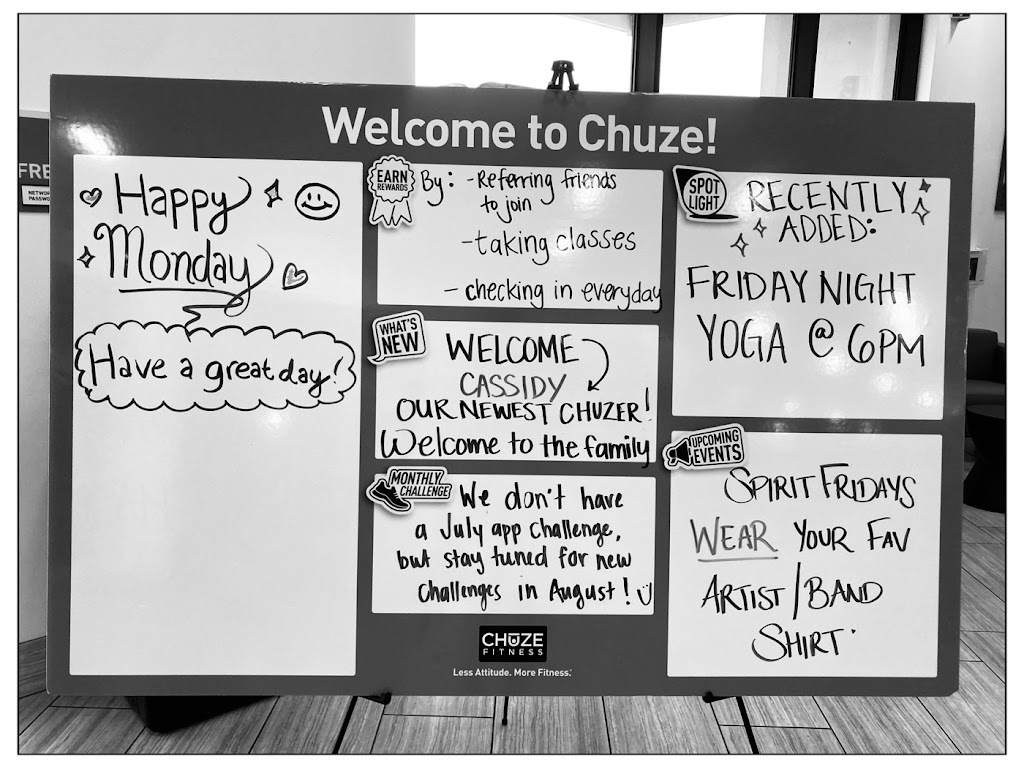 Welcome to Chuze!
FRE
NETWOR
PASSWO
Happy
Monday
Have a great day!
EARN
REWARDS
By: - Referring friends
to join
- taking classes
- checking in everyday
WHAT'S
NEW
WELCOME
CASSIDY
OUR NEWEST CHUZER!
Welcome to the family
MONTHLY
CHALLENGE
We don't have
a July app challenge,
but stay tuned for new
challenges in August!
SPOT
LIGHT
RECENTLY
ADDED:
FRIDAY NIGHT
YOGA @ 6PM
UPCOMING
EVENTS
SPIRIT FRIDAYS
WEAR YOUR FAV
ARTIST/BAND
SHIRT.
CHUZE
FITNESS
Less Attitude. More Fitness.